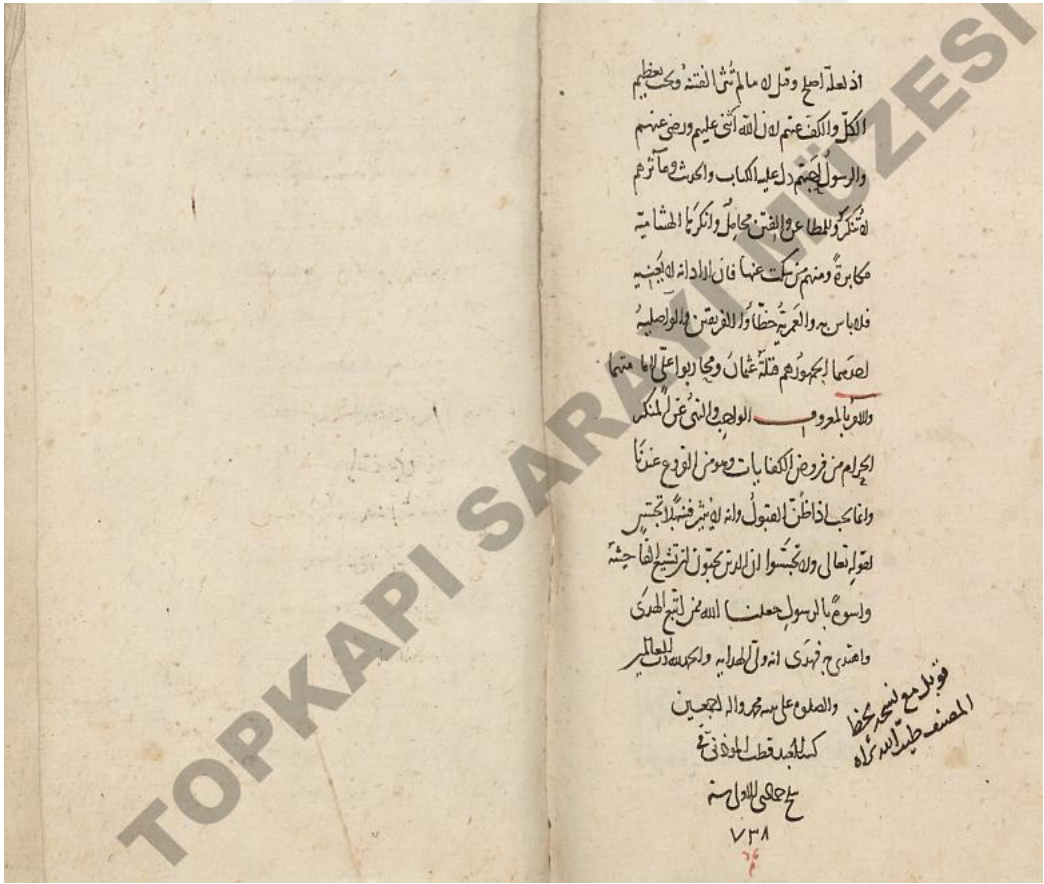 اذ لعله اصلح وقيل لا ما لم تثر الفتنة ويجب تعظيم
الكل والكف عنهم لان الله اثنى عليهم ورضي عنهم
والرسول احبهم دل عليه الكتاب والحديث ومآثرهم
لا تنكر وللمطاعن والفتن محامل وانكرتها الهشامية
مكابرة ومنهم من سكت عنها فان اراد انه لا يعنيه
فلا باس به والعمرية خطأوا الفريقين والواصلية
احدهما الجمهور هم قتلة عثمان ومحاربوا علي لامامتهما
والامر بالمعروف الواجب والنهي عن المنكر
الحرام من فروض الكفايات وهو من الفروع عندنا
وانما يجب اذا ظن القبول وانه لا يثير فتنة بلا تجسس
لقوله تعالى ولا تجسسوا ان الذين يحبون ان تشيع الفاحشة
واسوة بالرسول جعلنا الله ممن اتبع الهدى
واهتدى به فهدى انه ولي الهداية والحمد لله رب العالمين
والصلوة على نبيه محمد واله اجمعين
كتبه العبد قطب في
سلخ جمادى الاول سنة
٧٣٨
قوبل مع نسخة بخط
المصنف طيب الله ثراه
TOPKAPI SARAYI MÜZESİ